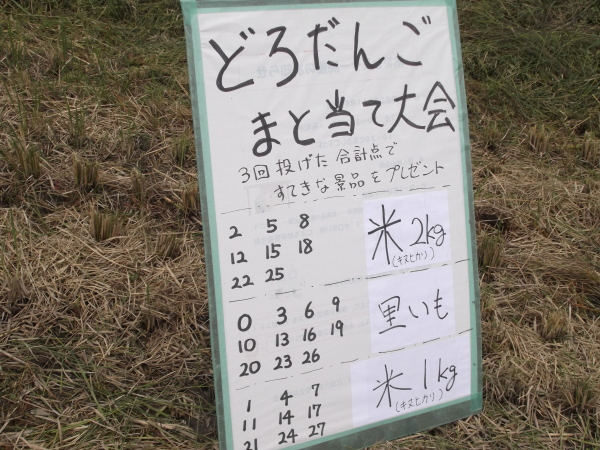 どろだんご
まと当て大会
3回投げた合計点で
すてきな景品をプレゼント
2 5 8
12 15 18
22 25
米2kg
(キヌヒカリ)
0 3 6 9
10 13 16 19
20 23 26
里いも
1 4 7
11 14 17
21 24 27
米1kg
(キヌヒカリ)